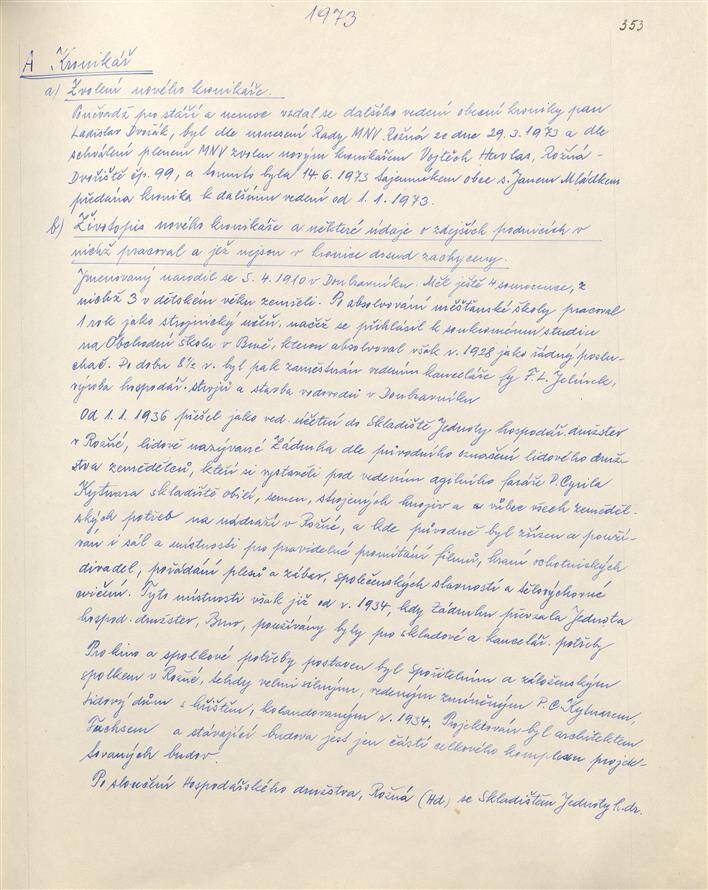 1973
353
A Kronikář
a) Zvolení nového kronikáře.
Poněvadž pro stáří a nemoc vzdal se dalšího vedení obecní kroniky pan
Ladislav Dvořák, byl dle usnesení Rady MNV Rožná ze dne 29.3.1973 a dle
schválení plenem MNV zvolen novým kronikářem Vojtěch Havlas, Rožná -
Dvořiště čp. 99, a tomuto byla 14.6.1973 tajemníkem obce s. Janem Mládkem
předána kronika k dalšímu vedení od 1.1.1973.
b) Životopis nového kronikáře a některé údaje o zdejších podnicích v
nichž pracoval a jež nejsou v kronice dosud zachyceny.
Jmenovaný narodil se 5.4.1910 v Doubravníku. Měl ještě 4 sourozence, z
nichž 3 v dětském věku zemřeli. Po absolvování měšťanské školy pracoval
1 rok jako strojnický učeň, načež se přihlásil k soukromému studiu
na Obchodní škole v Brně, kterou absolvoval však r. 1928 jako řádný poslu-
chač. Do dobu 8½ r. byl pak zaměstnán vedením kanceláře fy F. L. Jelínek,
výroba hospodář. strojů a stavba vodovodů v Doubravníku
Od 1.1.1936 přešel jako ved. účetní do Skladiště Jednoty hospodář. družstev
v Rožné, lidově nazývané Zádruha dle původního označení lidového druž-
stva zemědělců, kteří si vystavěli pod vedením agilního faráře P. Cyrila
Kytnara skladiště obilí, semen, strojených hnojiv a a vůbec všech zeměděl-
ských potřeb na nádraží v Rožné, a kde původně byl zřízen a použí-
ván i sál a místnosti pro pravidelné promítání filmů, hraní ochotnických
divadel, pořádání plesů a zábav, společenských slavností a tělovýchovné
cvičení. Tyto místnosti však již od r. 1934, kdy Zádruhu převzala Jednota
hospod. družstev, Brno, používány byly pro skladové a kancelář. potřeby
Pro kino a spolkové potřeby postaven byl Spořitelním a záloženským
spolkem v Rožné, tehdy velmi silným, vedeným zmíněným P. C. Kytnarem,
Lidový dům s hřištěm, kolaudovaným r. 1934. Projektován byl architektem
Fuchsem a stávající budova jest jen částí celkového komplexu projek-
tovaných budov.
Po sloučení Hospodářského družstva, Rožná (Hd) se Skladištěm Jednoty h. dr.